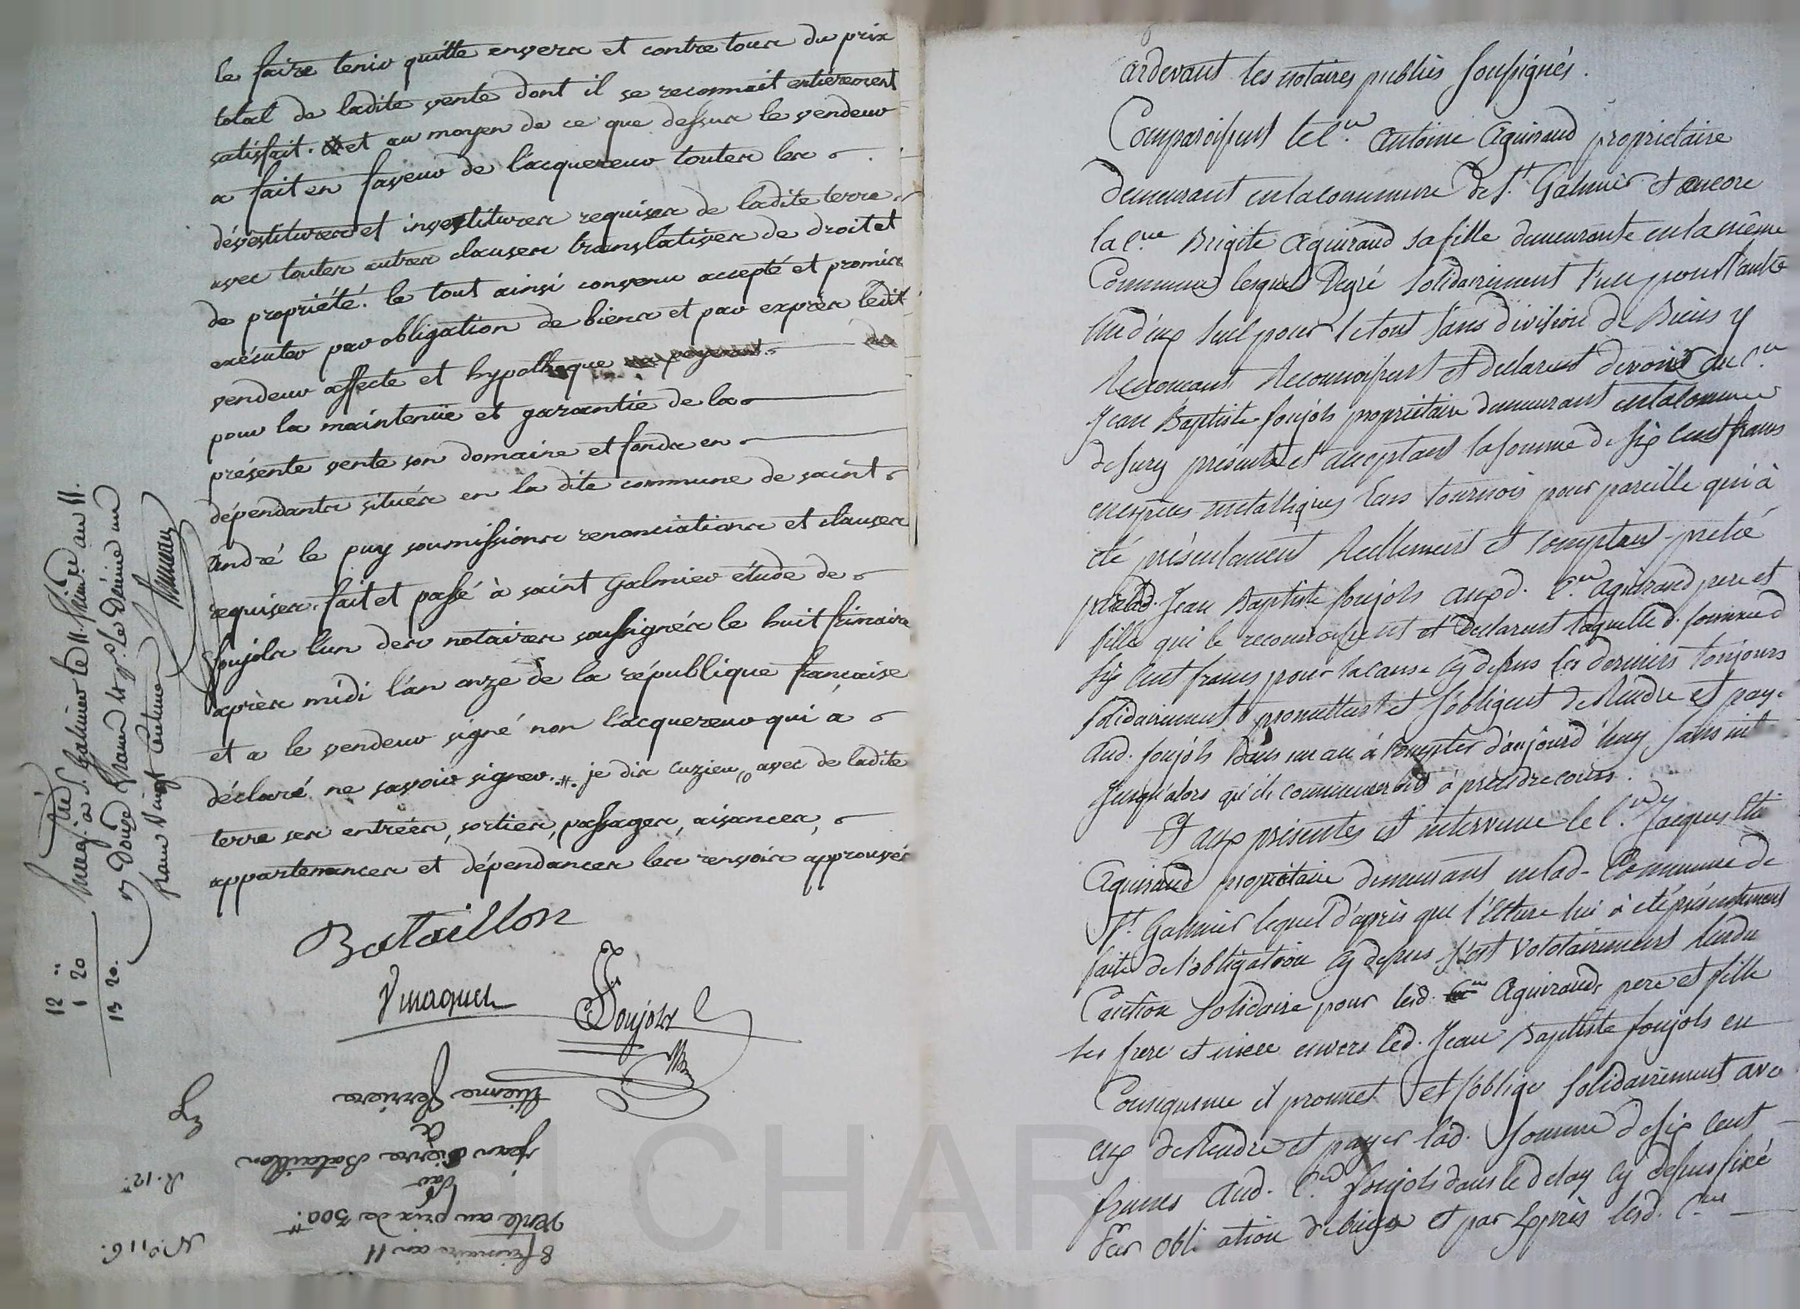 le faire tenir quitte envers et contre tous du prix
total de ladite vente dont il se reconnait entièrement
satisfait. et au moyen de ce que dessus le vendeur
a fait en faveur de l'acquereur toutes les
dévestitures et investitures requises de ladite terre
avec toutes autres clauses translatives de droit et
de propriété. le tout ainsi convenu accepté et promis
exécuter par obligation de biens et par exprès ledit
vendeur affecte et hypotheque
pour la maintenüe et garantie de la
présente vente son domaine et fonds en
dépendants situés en la dite commune de saint
andré le puy soumissions renonciations et clauses
requises. fait et passé à saint Galmier étude de
foujols l'un des notaires soussignés le huit frimaire
après midi l'an onze de la république française
et a le vendeur signé non l'acquereur qui a
déclaré ne savoir signer. #. je dis cuzieu, avec de ladite
terre ses entrées, sorties, passages, aisances,
appartenances et dépendances les renvois approuvés
Bataillon
Foujols
Enregistré à St. Galmier le 11 frimre. an 11.
Douze francs le Dixième un
franc Vingt Centimes
12 "
1 20
13 20.
8 frimaire an 11
Vente au prix de 300tt
Par
Jean Pierre Bataillon
a
Etienne Ferriere
R. 12tt
N.° 116.
Pardevant les notaires publics soussignés.
Comparoissent le Cen. Antoine Aguiraud propriétaire
demeurant en la commune de St. Galmier et encore
la Cne Brigite Aguiraud sa fille demeurante en la même
Commune lesquels De gré solidairement l'un pour l'autre
un d'eux seul pour le tout sans division de Biens y
Renonçant Reconnoissent et déclarent devoir au Cen.
Jean Baptiste foujols propriétaire demeurant en la commune
de Sury présent et acceptant la somme de six cent francs
en espèces métalliques tournois pour pareille qui a
été présentement Réellement et comptant pretée
par led. Jean Baptiste foujols auxd. Cen. Aguiraud pere et
fille qui le reconnoissent et declarent laquelle d. somme de
six cent francs pour la cause cy dessus les derniers toujours
solidairement promettent et s'obligent de Rendre et payer
aud. foujols Dans un an à compter d'aujourd'huy sans int
jusqu'alors qu'ils commenceront à prendre cours.
Et aux présentes est intervenu le Cen. Jacques
Aguiraud propriétaire demeurant en lad. Commune de
St. Galmier lequel d'après que lecture lui a été présentement
faite de l'obligation cy dessus s'est volotairement Rendu
Caution Solidaire pour lesd. Aguiraud pere et fille
ses frere et niece envers led. Jean Baptiste foujols en
Conséquence il promet et s'oblige solidairement avec
eux de Rendre et payer lad. somme de six cent
francs aud. Cen. foujols dans le delay cy dessus fixé
Par obligation de biens et par Exprès lesd. Cens
CHAR